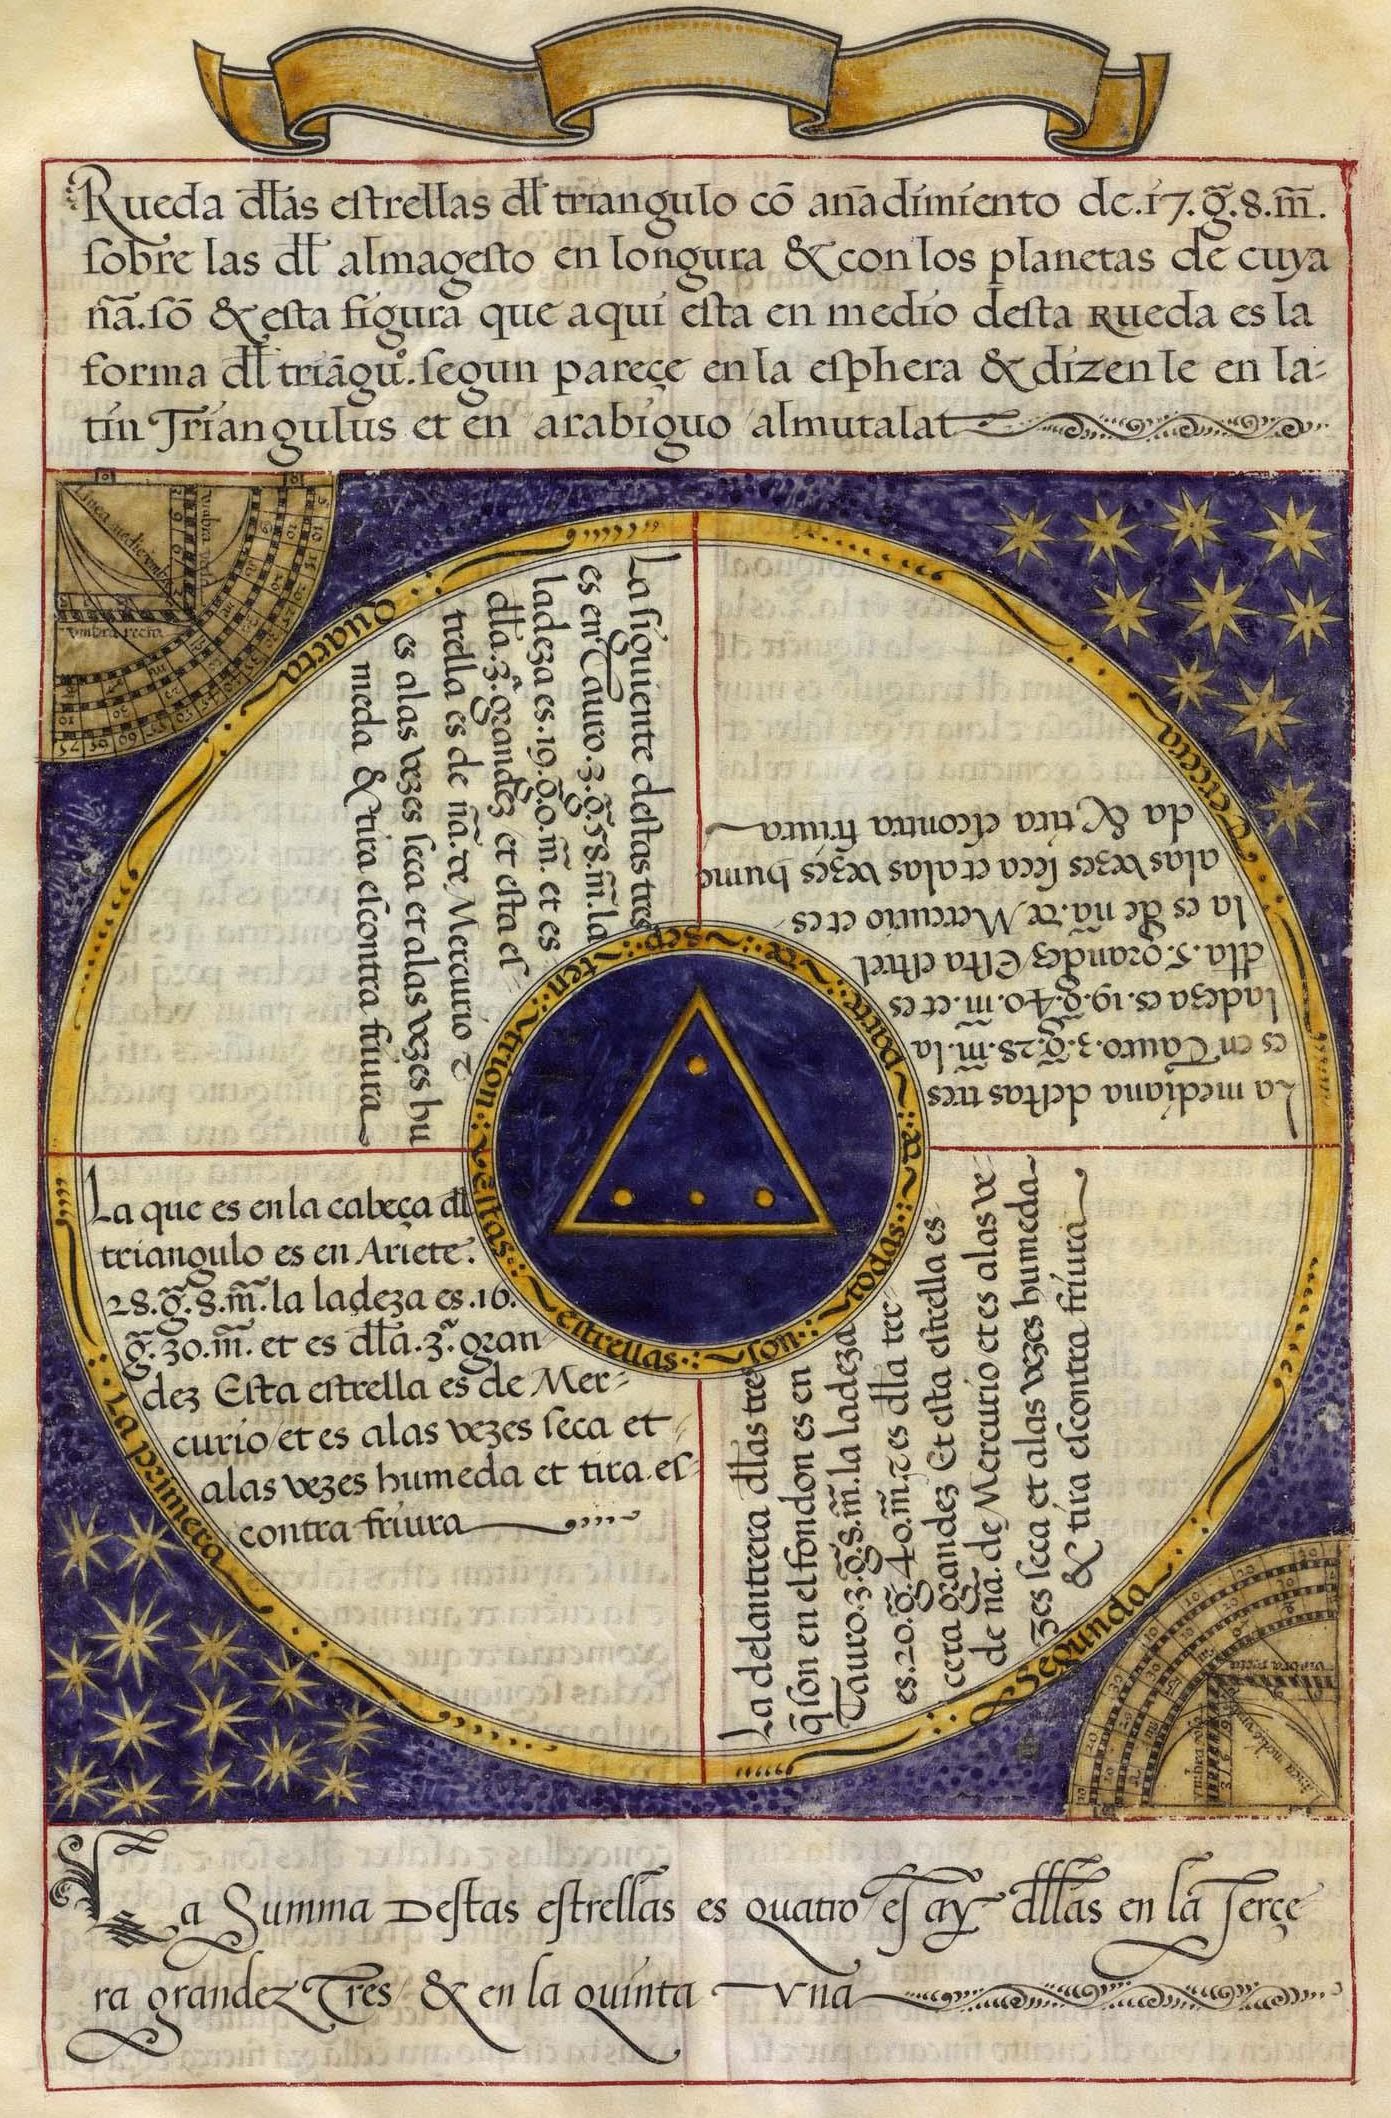 Rueda dl̄l̄as estrellas dl̄ triangulo cō anadimiento de .17. g̃. 8. m̃.
sobre las dl̄ almagesto en longura & con los planetas de cuya
ña. sō & esta figura que aqui esta en medio desta Rueda es la
forma dl̄ triāguº. segun pareçe en la esphera & dizen le en la-
tin Triangulus et en arabiguo almutalat
La primera
La que es en la cabeça dl̄
triangulo es en Ariete.
28. g̃. 8. m̃. la ladeza es .16.
g̃. 30. m̃. et es dl̄l̄a .3.ª gran
dez Esta estrella es de Mer-
curio / et es alas vezes seca et
alas vezes humeda et tira es-
contra friura
Segunda
La delantrera dl̄l̄as tres
q̃ son en el fondon es en
Tauro. 3. g̃. 8. m̃. la ladeza
es .20. g̃. 40. m̃. ⁊ es dlla ter-
cera grandez Et esta estrella es
de ña. de Mercurio et es alas ve-
zes seca et alas vezes humeda
& tira escontra friura
Tercera
La mediana destas tres
es en Tauro. 3. g̃. 28. m̃. la
ladeza es .19. g̃. 40. m̃. et es
dl̄l̄a .5. grandez / Esta estrel
la es de ña. de Mercurio et es
alas vezes seca et alas vezes hume
da & tira escontra friura
Quarta
La siguiente destas tres
es en Tauro. 3. g̃. 58. m̃. la
ladeza es .19. g̃. 0. m̃. et es
dl̄l̄a .3.ª grandez et esta es-
trella es de ña. de Mercurio ⁊
es alas vezes seca et alas vezes hu
meda & tira escontra friura
Estas: estrellas: son: todas: de: parte: de: sep: ten: trion:
linea medie
umbra recta
umbra recta
La Summa Destas estrellas es quatro / es ay dl̄l̄as en la Terçe
ra grandez Tres / & en la quinta Vna